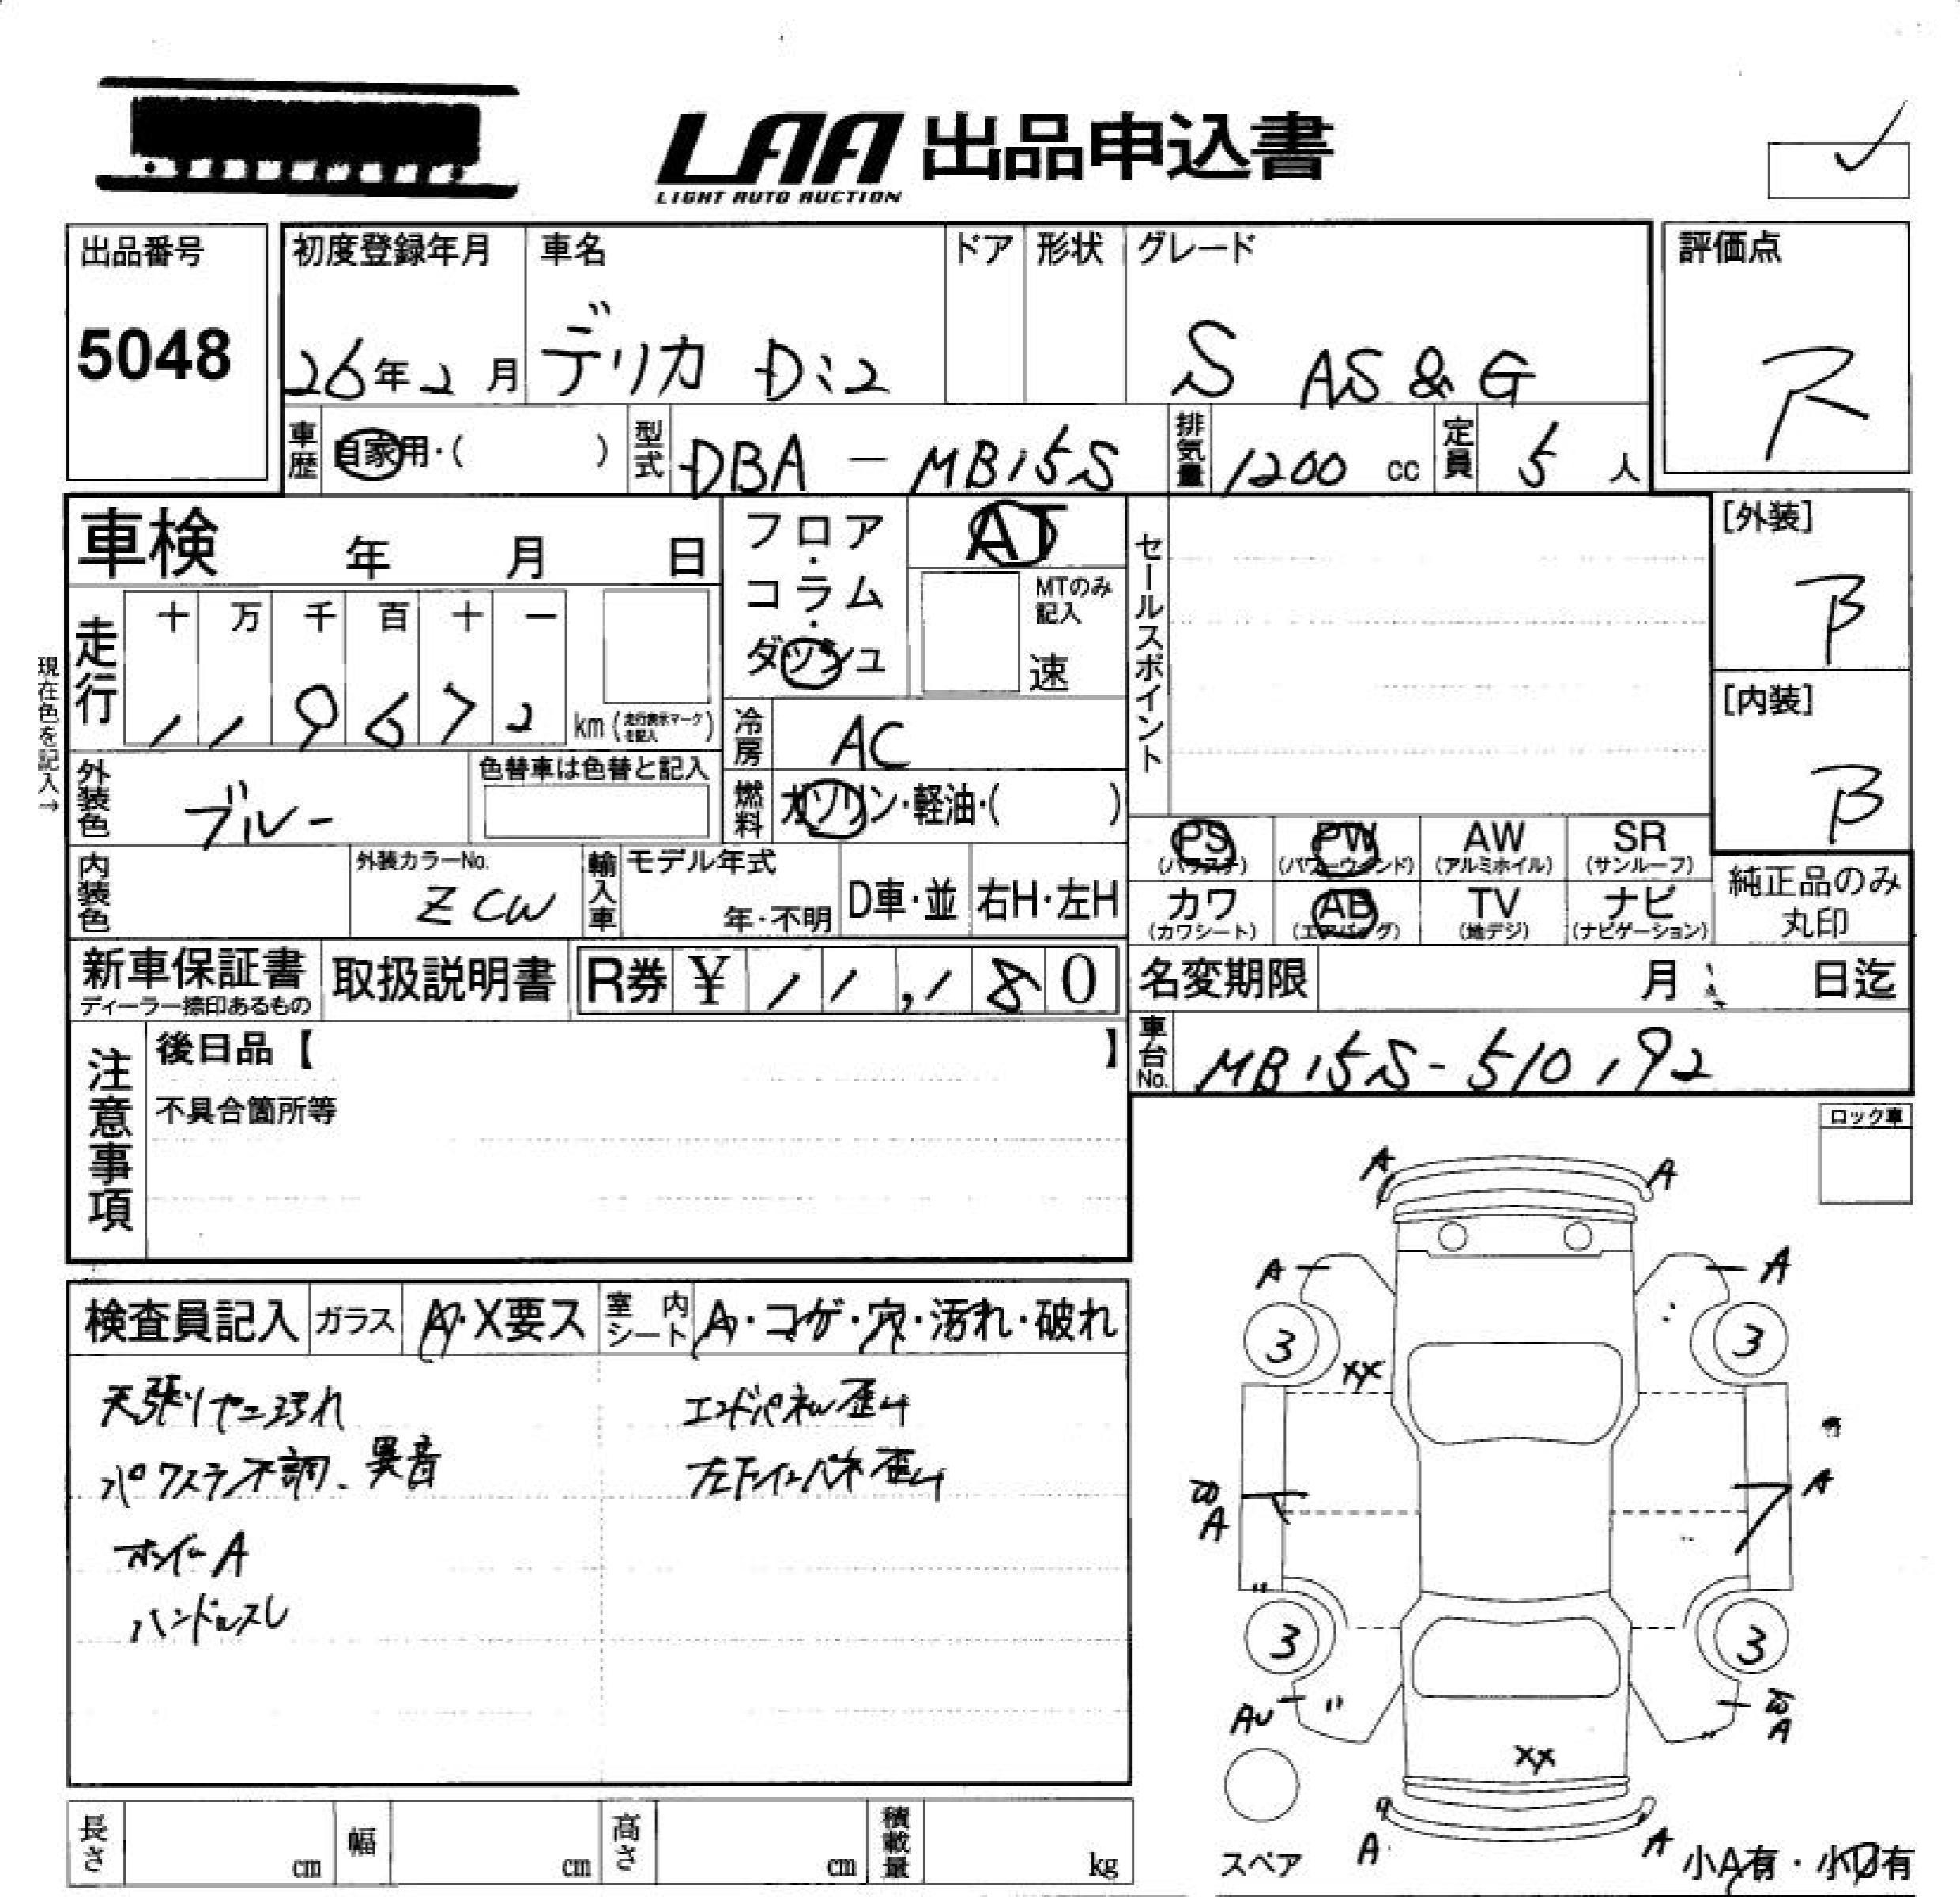 LAA 出品申込書
LIGHT AUTO AUCTION
出品番号
5048
初度登録年月
26年2月
車名
デリカ D:2
ドア
形状
グレード
S AS&G
評価点
R
車歴
自家用・( )
型式
DBA-MB15S
排気量
1200 cc
定員
5 人
車検 年 月 日
フロア・コラム・ダッシュ
AT
MTのみ記入
速
セールスポイント
[外装]
B
[内装]
B
現在色を記入→
走行
十 万 千 百 十 一
119672 km (走行表示マークを記入)
冷房
AC
外装色
ブルー
色替車は色替と記入
燃料
ガソリン・軽油・( )
PS (パワステ)
PW (パワーウィンド)
AW (アルミホイル)
SR (サンルーフ)
カワ (カワシート)
AB (エアバッグ)
TV (地デジ)
ナビ (ナビゲーション)
純正品のみ丸印
内装色
外装カラーNo.
ZCW
輸入車
モデル年式
年・不明
D車・並
右H・左H
新車保証書
ディーラー捺印あるもの
取扱説明書
R券 ¥11,180
名変期限 月 日迄
車台No.
MB15S-510192
注意事項
後日品【 】
不具合箇所等
ロック車
検査員記入
ガラス
A・X要ス
室内シート
A・コゲ・穴・汚れ・破れ
天張りヤニ汚れ
エンドパネル歪み
パワステ不調、異音
左下インパネ歪み
ホイールA
ハンドルスレ
A A
A A
3 3
XX
A
A
3 3
AU
A
XX
A A
スペア
小A有・小U有
長さ cm
幅 cm
高さ cm
積載量 kg